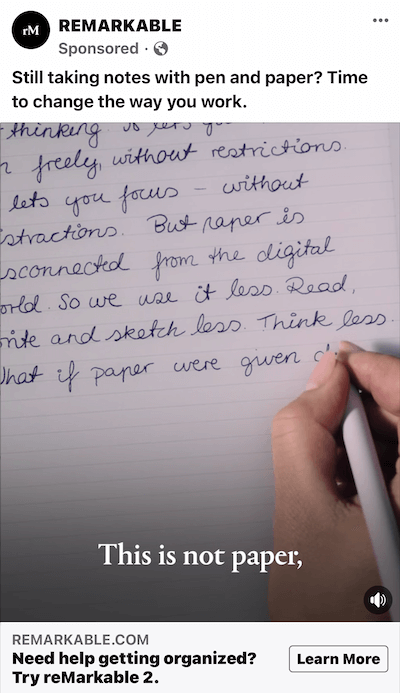 rM
REMARKABLE
Sponsored ·
Still taking notes with pen and paper? Time
to change the way you work.
thinking. It lets you
freely, without restrictions.
lets you focus – without
stractions. But paper is
sconnected from the digital
orld. So we use it less. Read,
rite and sketch less. Think less.
What if paper were given
This is not paper,
REMARKABLE.COM
Need help getting organized?
Try reMarkable 2.
Learn More